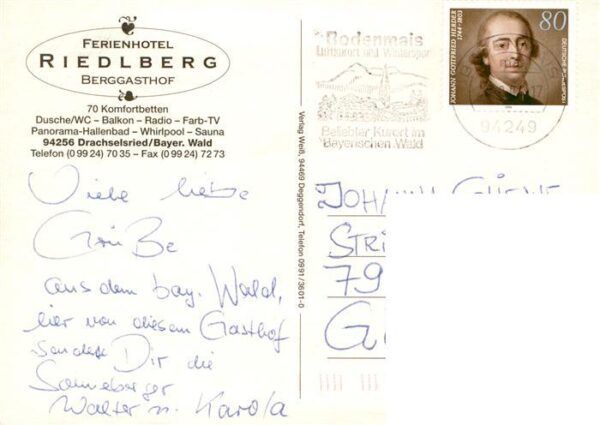 FERIENHOTEL
RIEDLBERG
BERGGASTHOF
70 Komfortbetten
Dusche/WC – Balkon – Radio – Farb-TV
Panorama-Hallenbad – Whirlpool – Sauna
94256 Drachselsried/Bayer. Wald
Telefon (0 99 24) 70 35 – Fax (0 99 24) 72 73
Viele liebe
Grüße
aus dem bay. Wald,
hier von diesem Gasthof
senden Dir die
Sonneberger
Walter u. Karola
Verlag Weiß, 94469 Deggendorf, Telefon 09 91 / 36 01-0
Bodenmais
Luftkurort und Wintersport
Beliebter Kurort im
Bayerischen Wald
80
JOHANN GOTTFRIED HERDER
1744-1803
DEUTSCHE BUNDESPOST
94249
JOHANN
STR
79
G